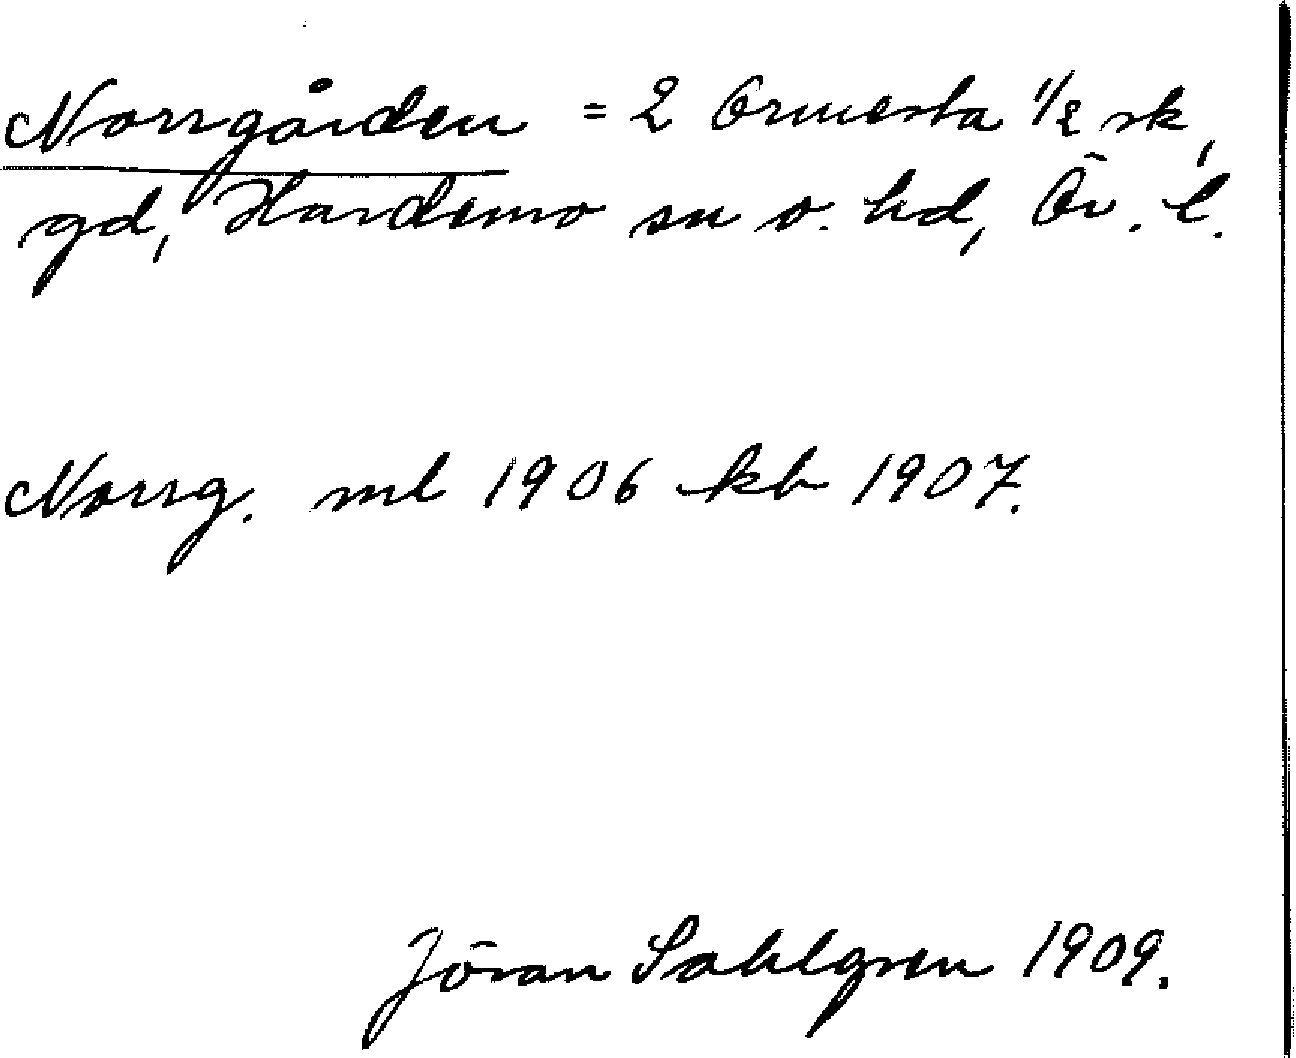 Norrgården = 2 Ormesta 1/2 sk,
gd, Hardemo sn o. hd, Ör. l.
Norrg. ml 1906 kb 1907.
Jöran Sahlgren 1909.